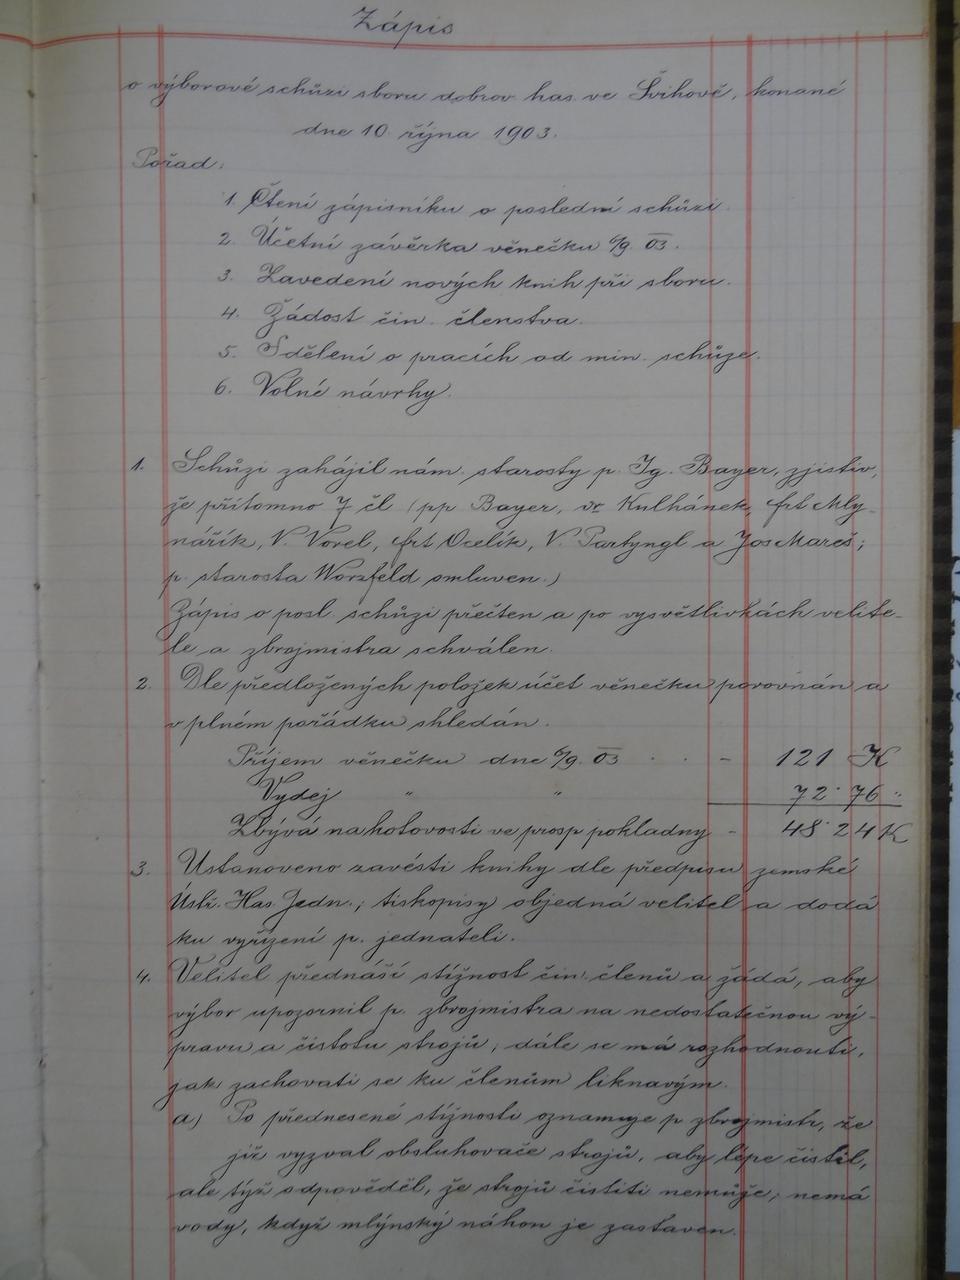 Zápis
o výborové schůzi sboru dobrov. has. ve Švihově, konané
dne 10. října 1903.
Pořad:
1. Čtení zápisníku o poslední schůzi.
2. Účetní závěrka věnečku 6/9. 03.
3. Zavedení nových knih při sboru.
4. Žádost čin. členstva.
5. Sdělení o pracích od min. schůze.
6. Volné návrhy.
1. Schůzi zahájil nám. starosty p. Ig. Bayer, zjistiv,
že přítomno 7 čl (pp Bayer, dr Kulhánek, frt Mly-
nářík, V. Vorel, frt Ocelík, V. Partyngl a Jos Mareš;
p. starosta Worzfeld omluven.)
Zápis o posl. schůzi přečten a po vysvětlivkách velite-
le a zbrojmistra schválen.
2. Dle předložených položek účet věnečku porovnán a
v plném pořádku shledán.
Příjem věnečku dne 6/9. 03 . . - 121 K
Vydej " " 72·76 "
Zbývá na hotovosti ve prosp pokladny - 48·24 K
3. Ustanoveno zavésti knihy dle předpisu zemské
Ústř. Has. Jedn.; tiskopisy objedná velitel a dodá
ku vyřízení p. jednateli.
4. Velitel přednáší stížnost čin. členů a žádá, aby
výbor upozornil p. zbrojmistra na nedostatečnou vý-
pravu a čistotu strojů; dále se má rozhodnouti,
jak zachovati se ku členům liknavým.
a) Po přednesené stížnosti oznamuje p zbrojmistr, že
již vyzval obsluhovače strojů, aby lépe čistil,
ale týž odpověděl, že strojů čistiti nemůže; nemá
vody, když mlýnský náhon je zastaven.